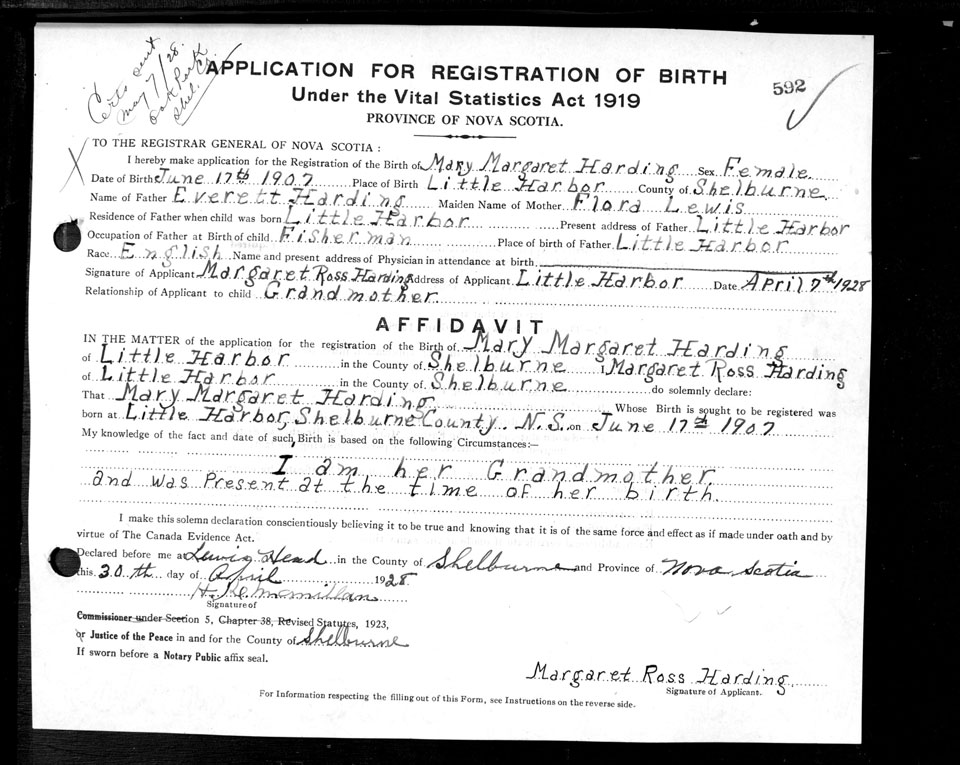 Certs sent
may 7/28.
Oak Park
Shel. Co.
APPLICATION FOR REGISTRATION OF BIRTH
Under the Vital Statistics Act 1919
592
PROVINCE OF NOVA SCOTIA.
TO THE REGISTRAR GENERAL OF NOVA SCOTIA :
I hereby make application for the Registration of the Birth of Mary Margaret Harding Sex Female.
Date of Birth June 17th 1907 Place of Birth Little Harbor County of Shelburne
Name of Father Everett Harding Maiden Name of Mother Flora Lewis
Residence of Father when child was born Little Harbor Present address of Father Little Harbor
Occupation of Father at Birth of child Fisherman Place of birth of Father Little Harbor
Race English Name and present address of Physician in attendance at birth
Signature of Applicant Margaret Ross Harding Address of Applicant Little Harbor Date April 7th 1928
Relationship of Applicant to child Grandmother.
AFFIDAVIT
IN THE MATTER of the application for the registration of the Birth of Mary Margaret Harding
of Little Harbor in the County of Shelburne i Margaret Ross Harding
of Little Harbor in the County of Shelburne do solemnly declare:
That Mary Margaret Harding Whose Birth is sought to be registered was
born at Little Harbor, Shelburne County. N.S. on June 17th 1907
My knowledge of the fact and date of such Birth is based on the following Circumstances:—
I am her Grandmother,
and was Present at the time of her birth.
I make this solemn declaration conscientiously believing it to be true and knowing that it is of the same force and effect as if made under oath and by
virtue of The Canada Evidence Act.
Declared before me at Lewis Head in the County of Shelburne and Province of Nova Scotia
this 30th day of April 1928
Signature of
Commissioner under Section 5, Chapter 38, Revised Statutes, 1923,
or Justice of the Peace in and for the County of Shelburne
If sworn before a Notary Public affix seal.
Margaret Ross Harding
Signature of Applicant.
For Information respecting the filling out of this Form, see Instructions on the reverse side.